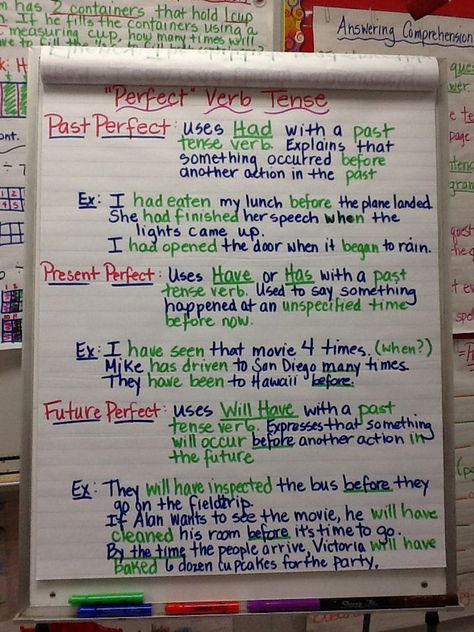 m has 2 containers that hold 1cup
n. If he fills the containers using a
measuring cup, how many times will
ve to fill
Answering Comprehension
"Perfect" Verb Tense
Past Perfect: uses Had with a past
tense verb. Explains that
something occurred before
another action in the past
Ex: I had eaten my lunch before the plane landed.
She had finished her speech when the
lights came up.
I had opened the door when it began to rain.
Present Perfect: Uses Have or Has with a past
tense verb. Used to say something
happened at an unspecified time
before now.
Ex: I have seen that movie 4 times. (when?)
Mike has driven to San Diego many times.
They have been to Hawaii before.
Future Perfect: uses Will Have with a past
tense verb. Expresses that something
will occur before another action in
the future
Ex: They will have inspected the bus before they
go on the fieldtrip.
If Alan wants to see the movie, he will have
cleaned his room before it's time to go.
By the time the people arrive, Victoria will have
baked 6 dozen cupcakes for the party.